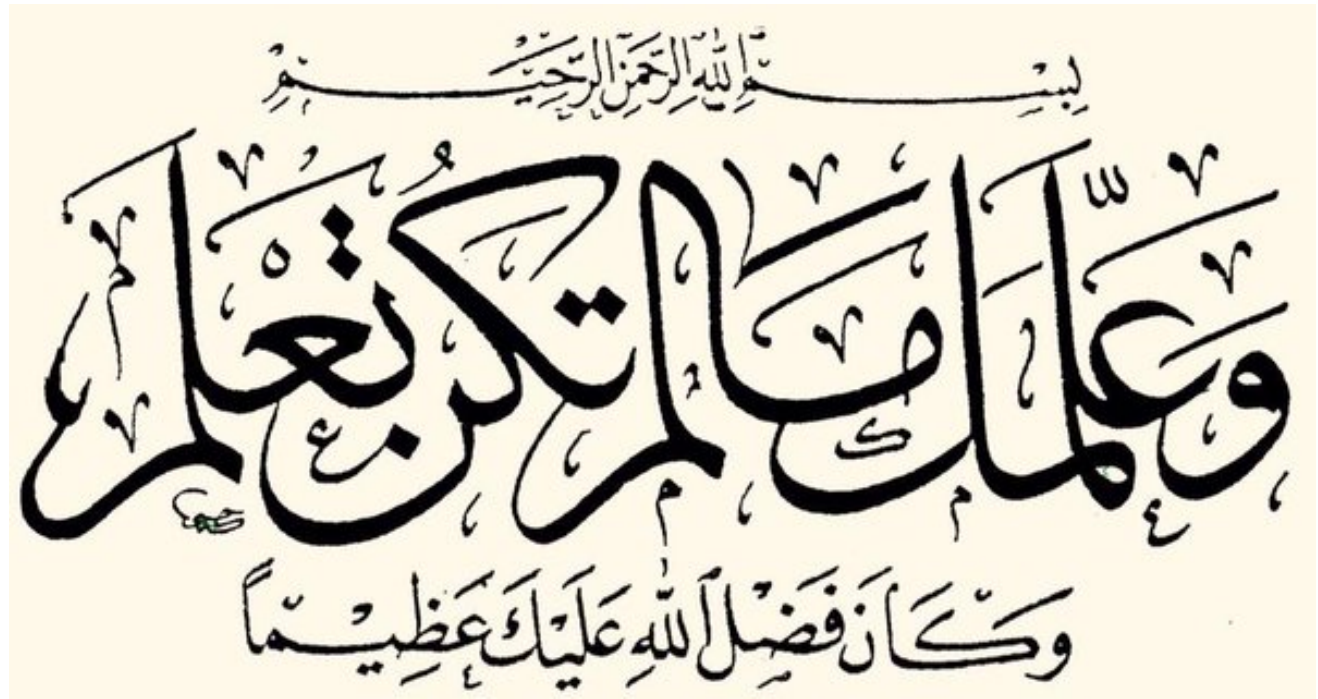 بِسْمِ اللهِ الرَّحْمنِ الرَّحِيْمِ
وَعَلَّمَكَ مَا لَمْ تَكُنْ تَعْلَمُ
وَكَانَ فَضْلُ ٱللهِ عَلَيْكَ عَظِيْماً